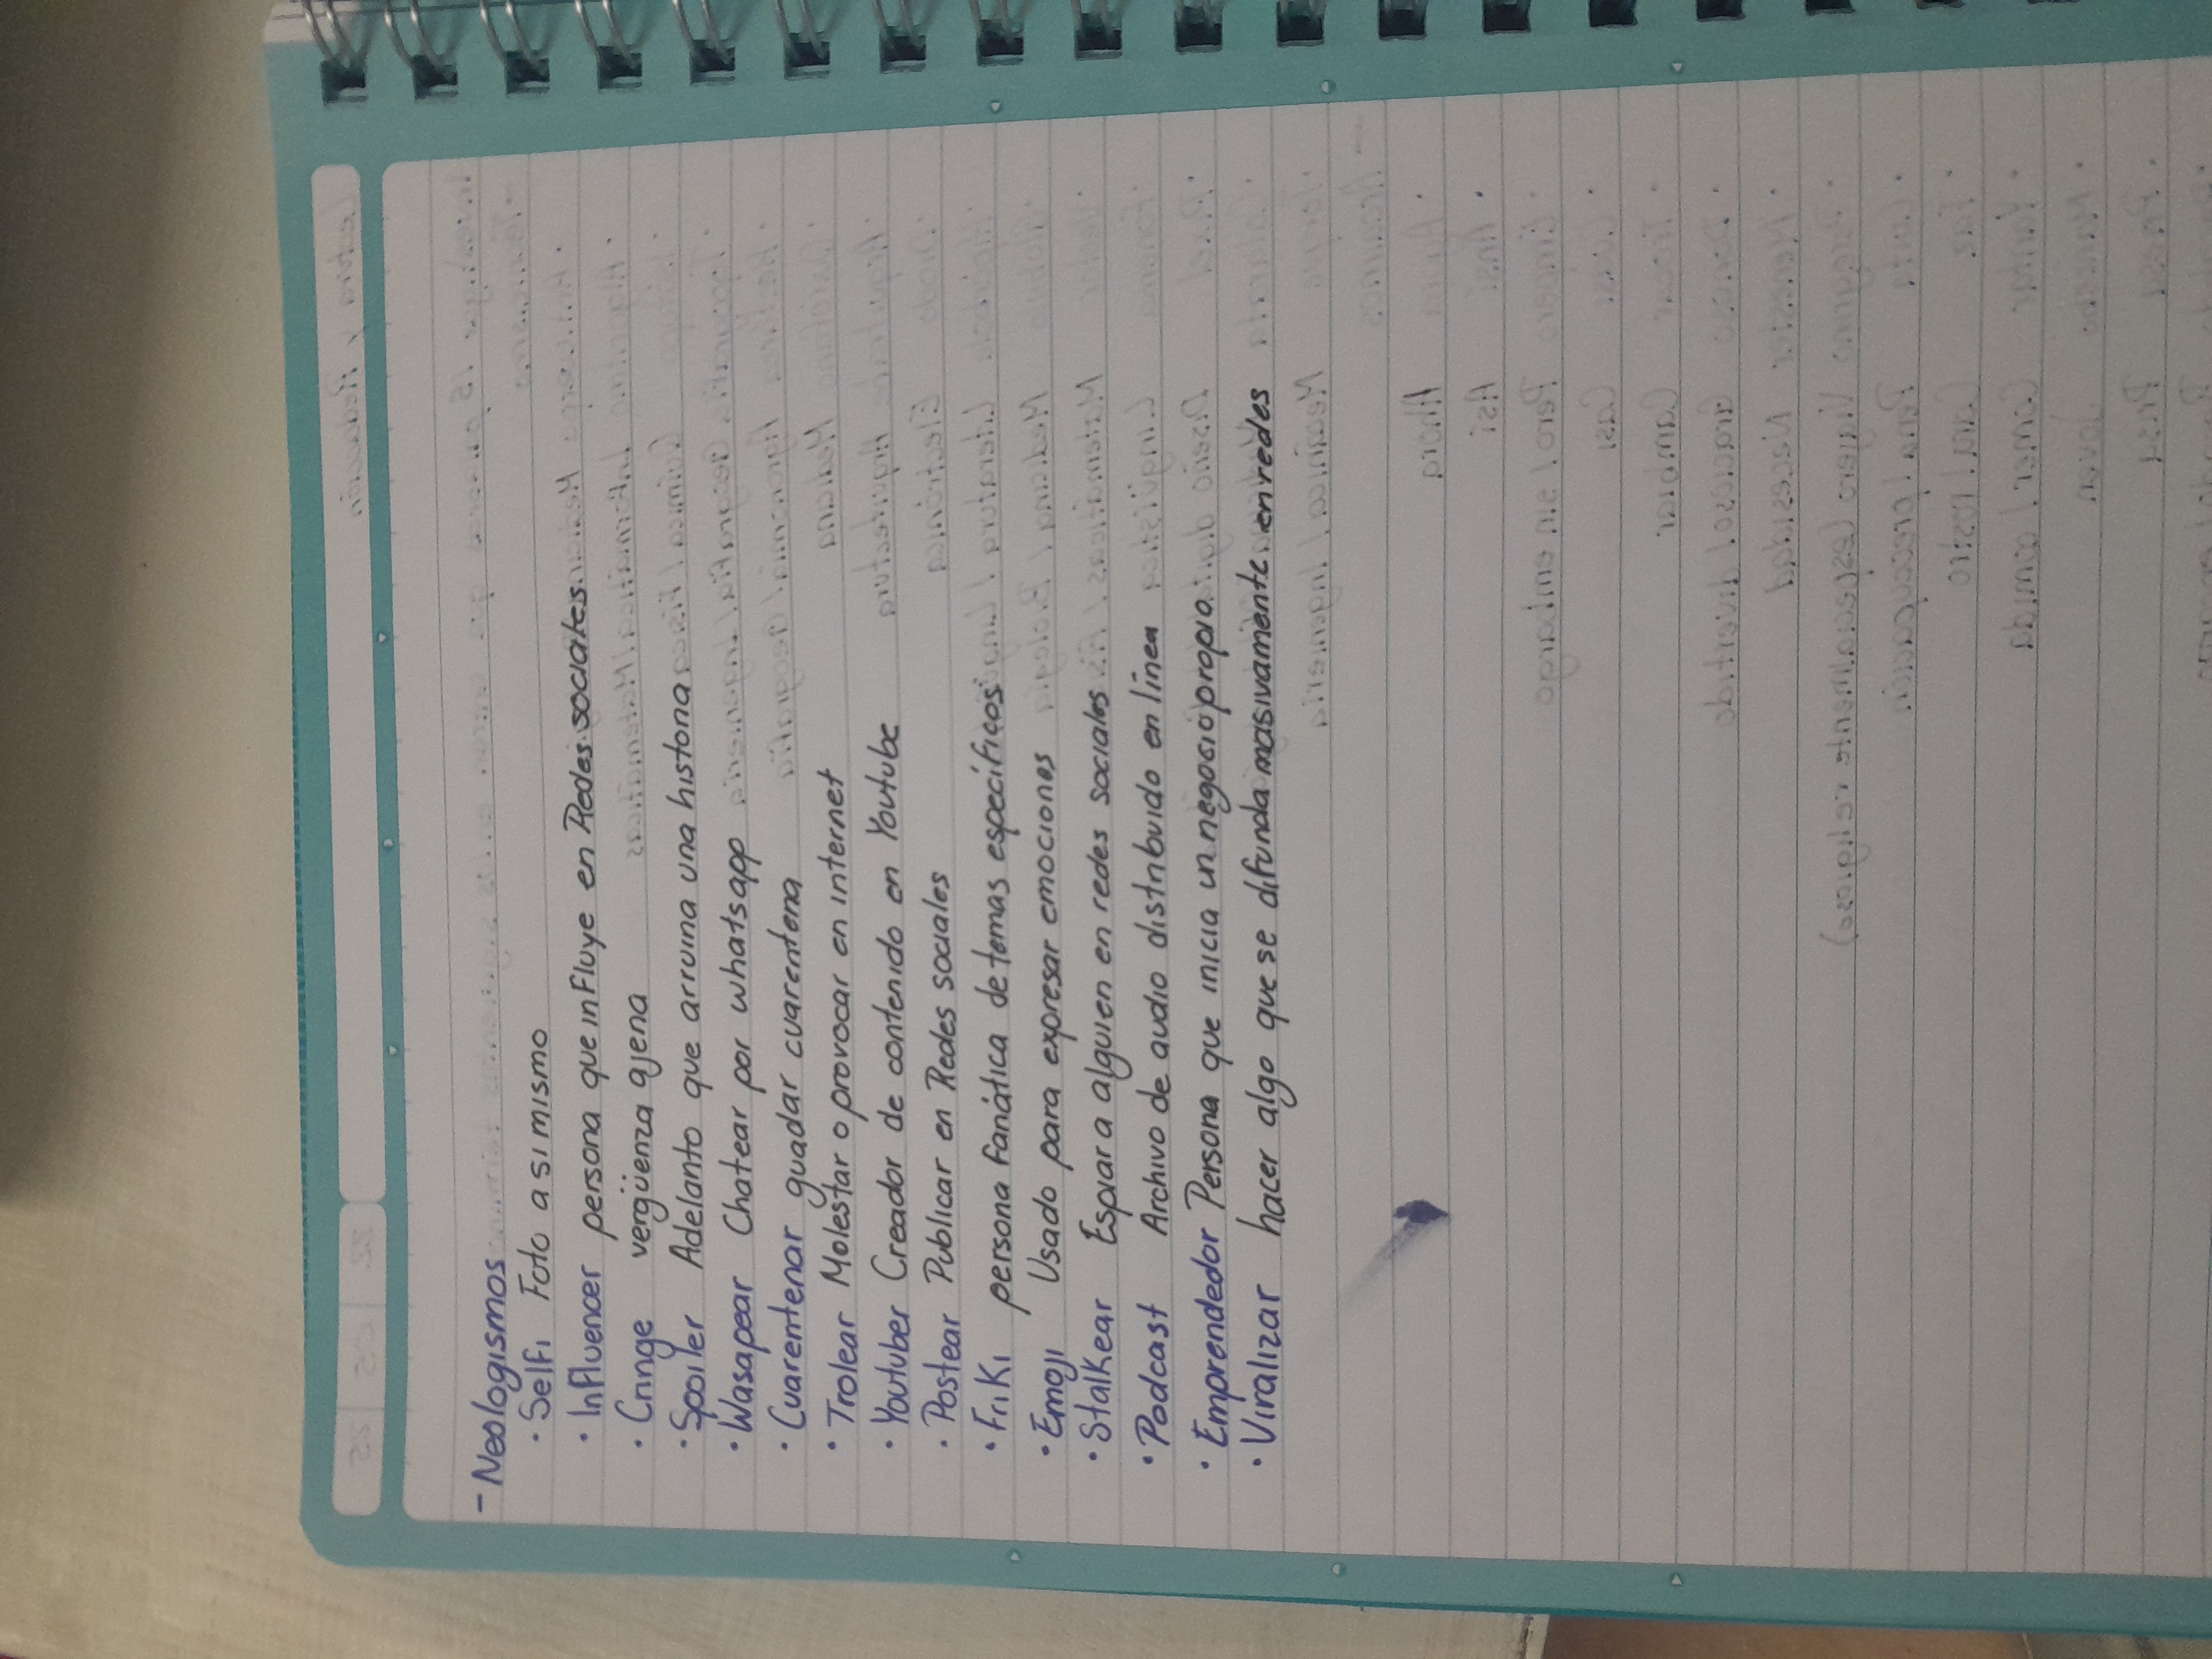 - Neologismos
· Selfi Foto a si mismo
· Influencer persona que influye en Redes sociales
· Cringe vergüenza ajena
· Spoiler Adelanto que arruina una historia
· Wasapear Chatear por whatsapp
· Cuarentenar guadar cuarentena
· Trolear Molestar o provocar en internet
· Youtuber Creador de contenido en Youtube
· Postear Publicar en Redes sociales
· Friki persona fanática de temas específicos
· Emoji Usado para expresar emociones
· Stalkear Espiar a alguien en redes sociales
· Podcast Archivo de audio distribuido en línea
· Emprendedor Persona que inicia un negocio propio
· Viralizar hacer algo que se difunda masivamente en redes